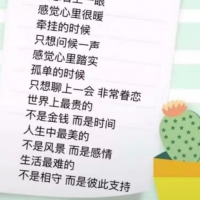 一眼
感觉心里很暖
牵挂的时候
只想问候一声
感觉心里踏实
孤单的时候
只想聊上一会 非常眷恋
世界上最贵的
不是金钱 而是时间
人生中最美的
不是风景 而是感情
生活最难的
不是相守 而是彼此支持